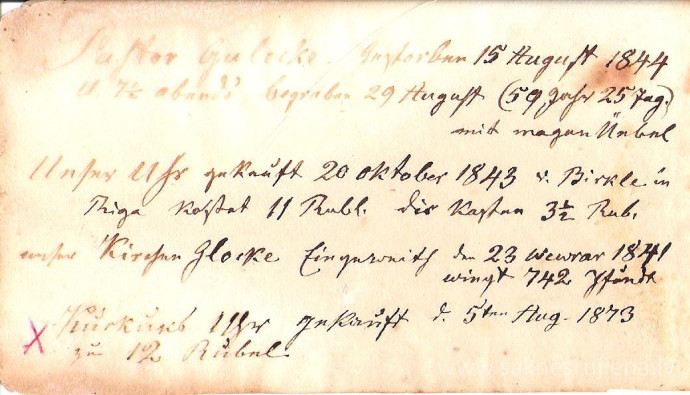 Pastor Gulecke. gestorben 15 August 1844
U. 7½ abends begraben 29 August (59 Jahr 25 Tag.)
mit magen Üebel
Unser Uhr gekauft 20 oktober 1843 v. Birkle in
Riga kostet 11 Rubl. die Kasten 3½ Rub.
unser Kirchen Glocke Eingeweith den 23 wewrar 1841
wiegt 742 Pfundt
X Uhr gekauft d. 5ten Aug. 1873
zu 12 Rubel.